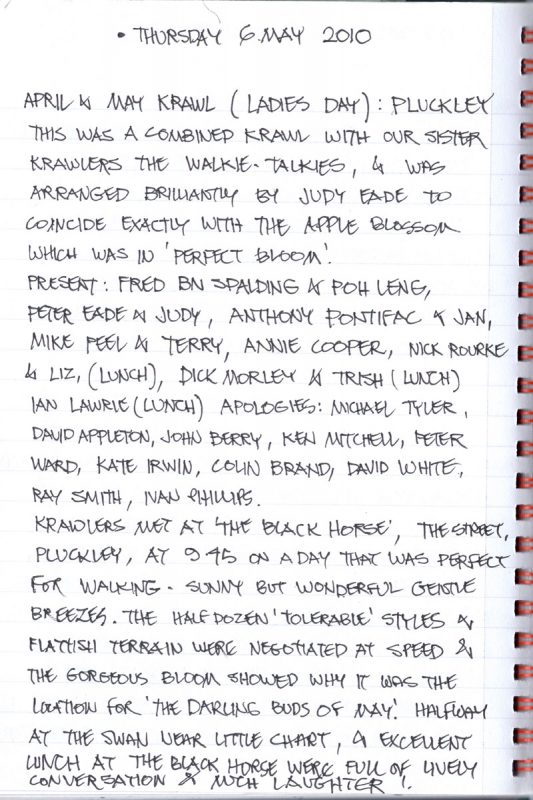 • THURSDAY 6 MAY 2010
APRIL & MAY KRAWL (LADIES DAY): PLUCKLEY
THIS WAS A COMBINED KRAWL WITH OUR SISTER
KRAWLERS THE WALKIE-TALKIES, & WAS
ARRANGED BRILLIANTLY BY JUDY EADE TO
COINCIDE EXACTLY WITH THE APPLE BLOSSOM
WHICH WAS IN 'PERFECT BLOOM'.
PRESENT: FRED BN SPALDING & POH LENG,
PETER EADE & JUDY, ANTHONY PONTIFAC & JAN,
MIKE PEEL & TERRY, ANNIE COOPER, NICK ROURKE
& LIZ, (LUNCH), DICK MORLEY & TRISH (LUNCH)
IAN LAWRIE (LUNCH) APOLOGIES: MICHAEL TYLER,
DAVID APPLETON, JOHN BERRY, KEN MITCHELL, PETER
WARD, KATE IRWIN, COLIN BRAND, DAVID WHITE,
RAY SMITH, IVAN PHILLIPS.
KRAWLERS MET AT 'THE BLACK HORSE', THE STREET,
PLUCKLEY, AT 9 45 ON A DAY THAT WAS PERFECT
FOR WALKING - SUNNY BUT WONDERFUL GENTLE
BREEZES. THE HALF DOZEN 'TOLERABLE' STYLES &
FLATTISH TERRAIN WERE NEGOTIATED AT SPEED &
THE GORGEOUS BLOOM SHOWED WHY IT WAS THE
LOCATION FOR 'THE DARLING BUDS OF MAY'. HALFWAY
AT THE SWAN NEAR LITTLE CHART, & EXCELLENT
LUNCH AT THE BLACK HORSE WERE FULL OF LIVELY
CONVERSATION & MUCH LAUGHTER!.